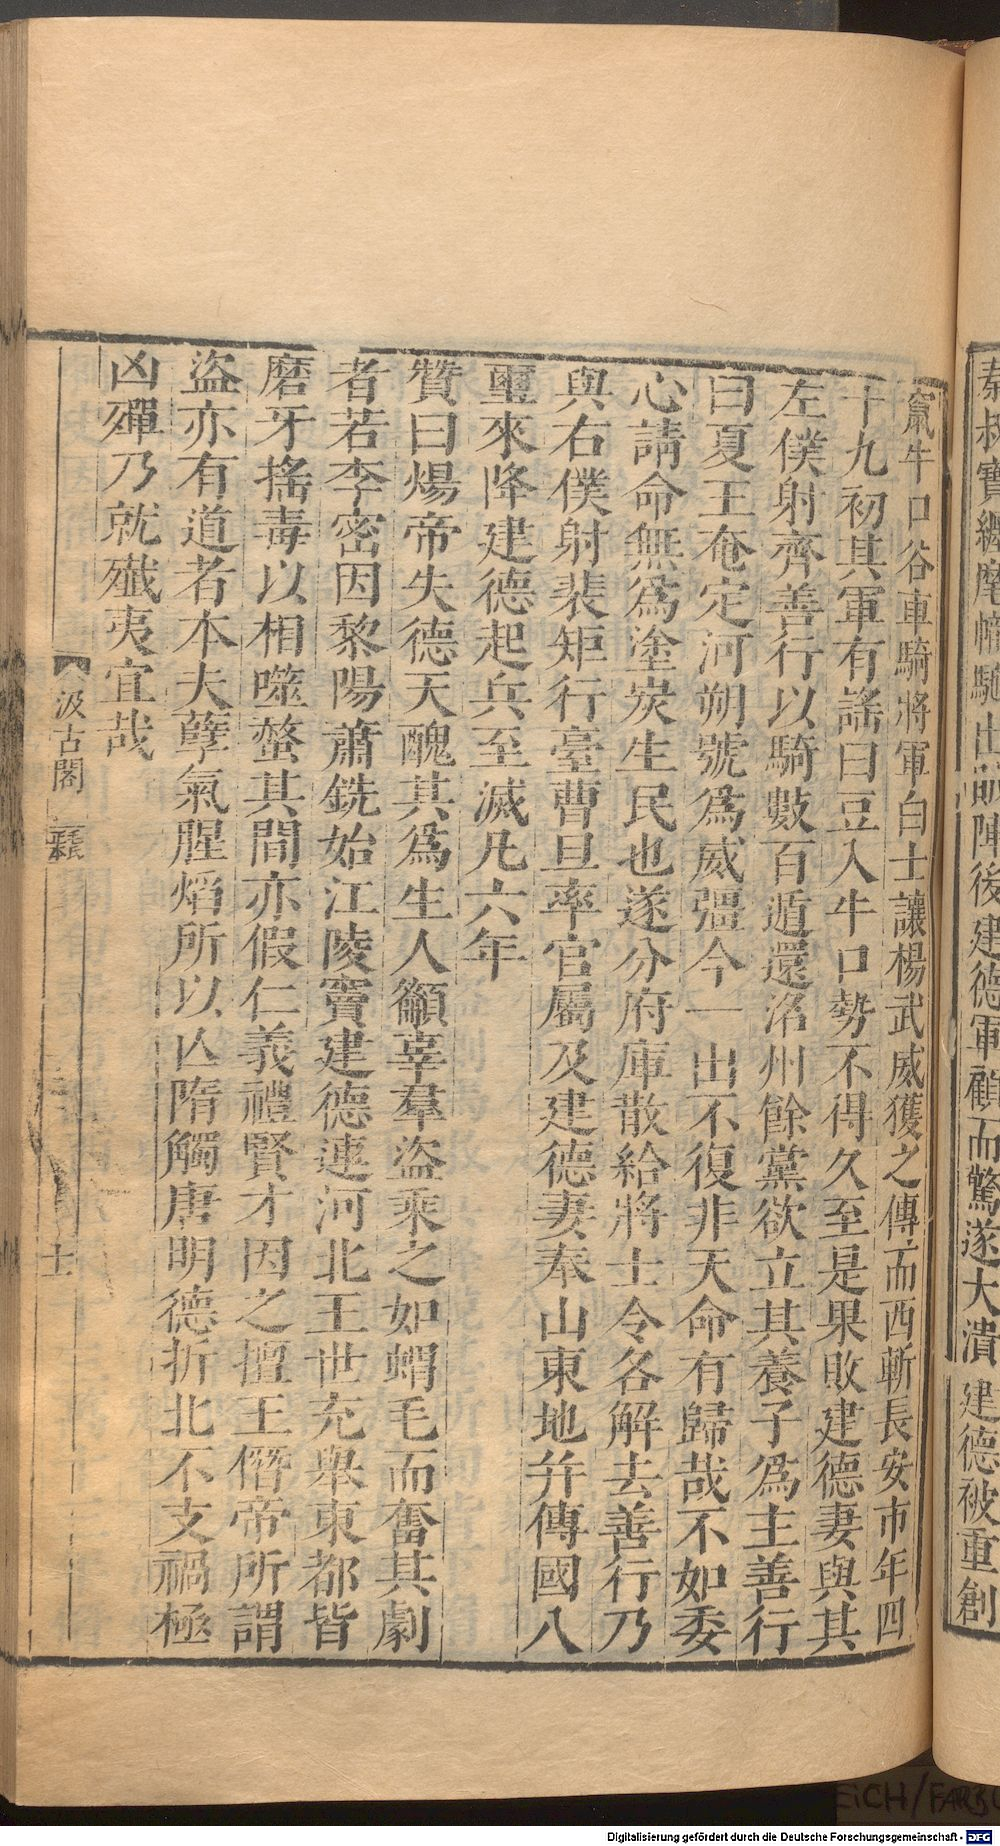 秦叔寶纏麾幟馳出敵陣後建德軍顧而驚遂大潰建德被重創
竄牛口谷車騎將軍白士讓楊武威獲之傳而西斬長安市年四
十九初其軍有謠曰豆入牛口勢不得久至是果敗建德妻與其
左僕射齊善行以騎數百遁還洺州餘黨欲立其養子爲主善行
曰夏王奄定河朔號爲威彊今一出不復非天命有歸哉不如委
心請命無爲塗炭生民也遂分府庫散給將士令各解去善行乃
與右僕射裴矩行臺曹旦率官屬及建德妻奉山東地幷傳國八
璽來降建德起兵至滅凡六年
贊曰煬帝失德天醜其爲生人籲辜羣盜乘之如蝟毛而奮其劇
者若李密因黎陽蕭銑始江陵竇建德連河北王世充舉東都皆
磨牙搖毒以相噬螫其間亦假仁義禮賢才因之擅王僭帝所謂
盜亦有道者本夫孽氣腥焰所以亾隋觸唐明德折北不支禍極
凶殫乃就殲夷宜哉
汲古閣
毛氏正本
十
Digitalisierung gefördert durch die Deutsche Forschungsgemeinschaft - DFG